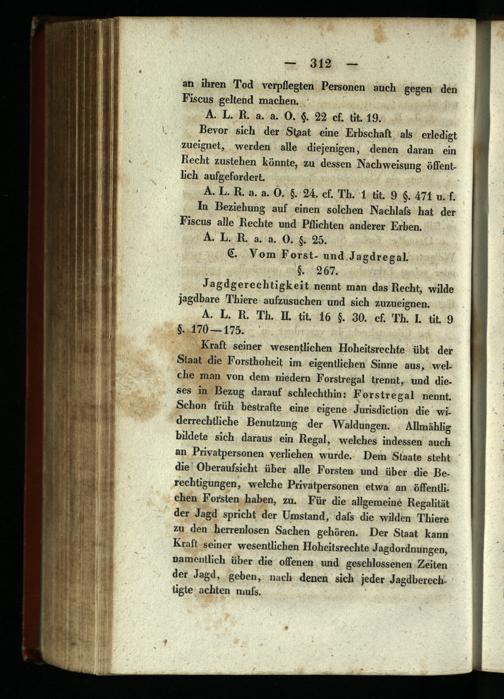 — 312 —
an ihren Tod verpflegten Personen auch gegen den
Fiscus geltend machen.
A. L. R. a. a. O. §. 22 cf. tit. 19.
Bevor sich der Staat eine Erbschaft als erledigt
zueignet, werden alle diejenigen, denen daran ein
Recht zustehen könnte, zu dessen Nachweisung öffent-
lich aufgefordert.
A. L. R. a. a. O. §. 24. cf. Th. 1 tit. 9 §. 471 u. f.
In Beziehung auf einen solchen Nachlaſs hat der
Fiscus alle Rechte und Pflichten anderer Erben.
A. L. R. a. a. O. §. 25.
C. Vom Forst- und Jagdregal.
§. 267.
Jagdgerechtigkeit nennt man das Recht, wilde
jagdbare Thiere aufzusuchen und sich zuzueignen.
A. L. R. Th. II. tit. 16 §. 30. cf. Th. I. tit. 9
§. 170—175.
Kraft seiner wesentlichen Hoheitsrechte übt der
Staat die Forsthoheit im eigentlichen Sinne aus, wel-
che man von dem niedern Forstregal trennt, und die-
ses in Bezug darauf schlechthin: Forstregal nennt.
Schon früh bestrafte eine eigene Jurisdiction die wi-
derrechtliche Benutzung der Waldungen. Allmählig
bildete sich daraus ein Regal, welches indessen auch
an Privatpersonen verliehen wurde. Dem Staate steht
die Oberaufsicht über alle Forsten und über die Be-
rechtigungen, welche Privatpersonen etwa an öffentli-
chen Forsten haben, zu. Für die allgemeine Regalität
der Jagd spricht der Umstand, daſs die wilden Thiere
zu den herrenlosen Sachen gehören. Der Staat kann
Kraft seiner wesentlichen Hoheitsrechte Jagdordnungen,
namentlich über die offenen und geschlossenen Zeiten
der Jagd, geben, nach denen sich jeder Jagdberech-
tigte achten muſs.